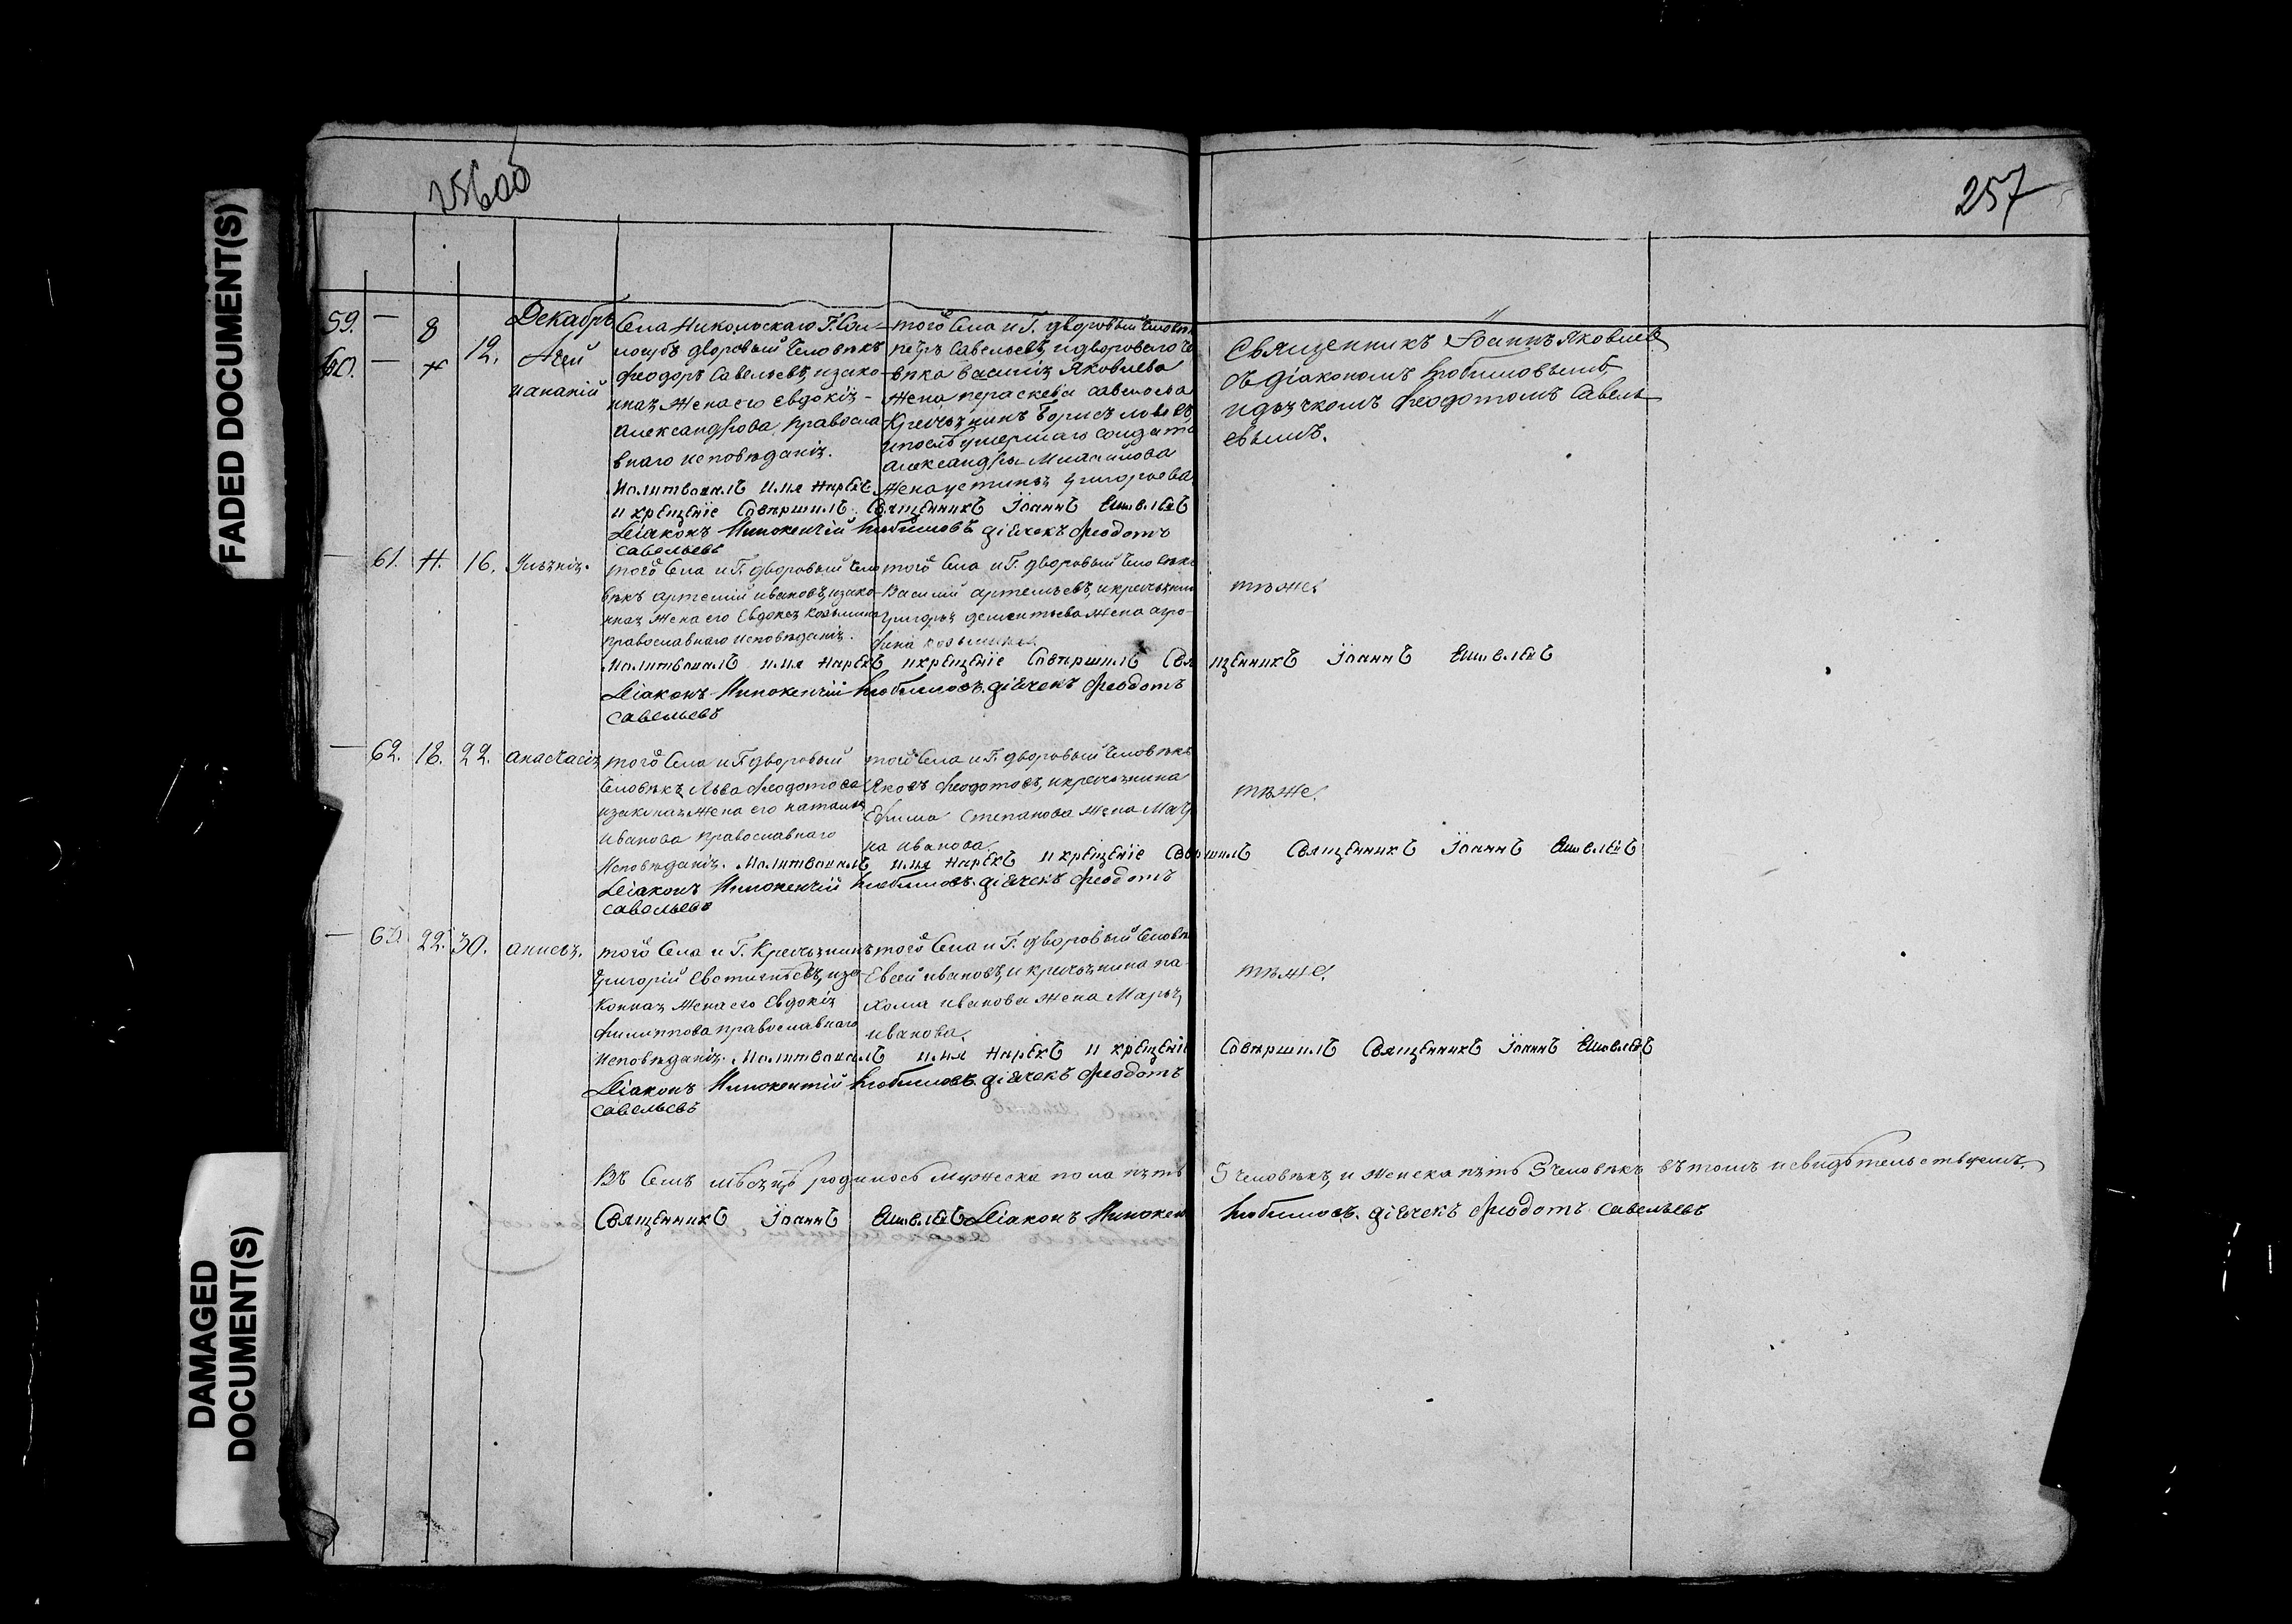 256 об
257
Декабрь
59. — 8 12. Агей
60. — 8 и ананий
Села Никольскаго Г. Сои-
логубъ дворовый человѣкъ
Феодоръ Савельевъ, изако-
нная Жена его Евдокія
Александрова, правосла
внаго исповѣданія.
того Села и Г. дворовый человѣ
петръ Савельевъ, и двороваго че
вѣка Василія Яковлева
Жена параскева савельева
крестьянинъ Борисъ
и послѣ умершаго солдата
александра
Жена устинья григорьева.
Священникъ Іоаннъ Яковлев
съ діакономъ Любимовымъ
и дьячкомъ Феодотомъ Савель
евымъ.
Молитвовалъ имя нарекъ
и крещеніе Совершилъ Священникъ Іоаннъ Яковлевъ
Діаконъ Инокентій Любимовъ. діячекъ Феодотъ
савельевъ
— 61. 11. 16. Уліянія.
того Села и Г. дворовый чело
вѣкъ артемій ивановъ, изако-
нная Жена его Евдокея Козьмина
православнаго исповѣданія.
того Села и Г. дворовый человѣкъ
Василій артемьевъ, и крестьянина
григорья дементьева Жена агро-
фина козьмина
тѣже.
Молитвовалъ имя нарекъ и крещеніе Совершилъ Священникъ Іоаннъ Яковлевъ
Діаконъ Инокентій Любимовъ. діячекъ Феодотъ
савельевъ
— 62. 18. 22. анастасія
того Села и Г. дворовый
Человѣкъ Льва Феодотова
изаконная Жена его наталья
Иванова православнаго
Исповѣданія.
того Села и Г. дворовый Человѣкъ
Яковъ Феодотовъ, и крестьянина
Ефима Степанова Жена Матр
на иванова.
тѣже.
Молитвовалъ имя нарекъ и крещеніе Совершилъ Священникъ Іоаннъ Яковлевъ
Діаконъ Инокентій Любимовъ. діячекъ Феодотъ
савельевъ
— 63. 22. 30. анисья.
того Села и Г. Крестьянинъ
Григорій Евстигнѣевъ, иза
конная Жена его Евдокія
филиппова православнаго
Исповѣданія.
того Села и Г. дворовый Человѣ
Евсей ивановъ, и крестьянина па-
хома иванова Жена Марья
иванова.
тѣже.
Молитвовалъ имя нарекъ и крещеніе Совершилъ Священникъ Іоаннъ Яковлевъ
Діаконъ Инокентій Любимовъ. діячекъ Феодотъ
савельевъ
Въ Семъ мѣсяцѣ родилось мужеска пола пять 5 человѣкъ, и женска пять 5 человѣкъ вътомъ и свидѣтельствуемъ.
Священникъ Іоаннъ Яковлевъ Діаконъ Инокен Любимовъ. діячекъ Феодотъ савельевъ
FADED DOCUMENT(S)
DAMAGED
DOCUMENT(S)